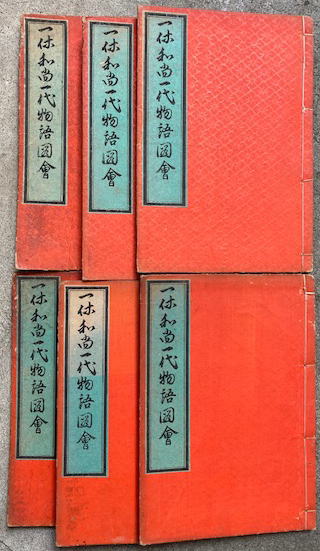 一休和尚一代物語圖會
一休和尚一代物語圖會
一休和尚一代物語圖會
一休和尚一代物語圖會
一休和尚一代物語圖會
一休和尚一代物語圖會